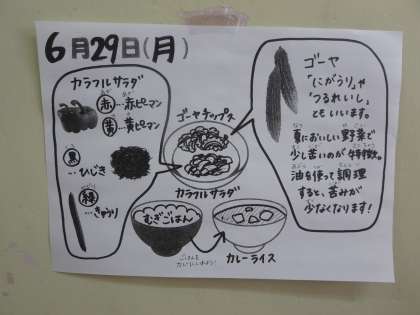 6月29日(月)
カラフルサラダ
赤…赤ピーマン
黄…黄ピーマン
黒
…ひじき
緑
…きゅうり
ゴーヤチップス
カラフルサラダ
むぎごはん
カレーライス
ごはんを
カレーにいれよう!
ゴーヤ
「にがうり」や
「つるれいし」
ともいいます。
夏においしい野菜で
少し苦いのが特徴。
油を使って調理
すると、苦みが
少なくなります!